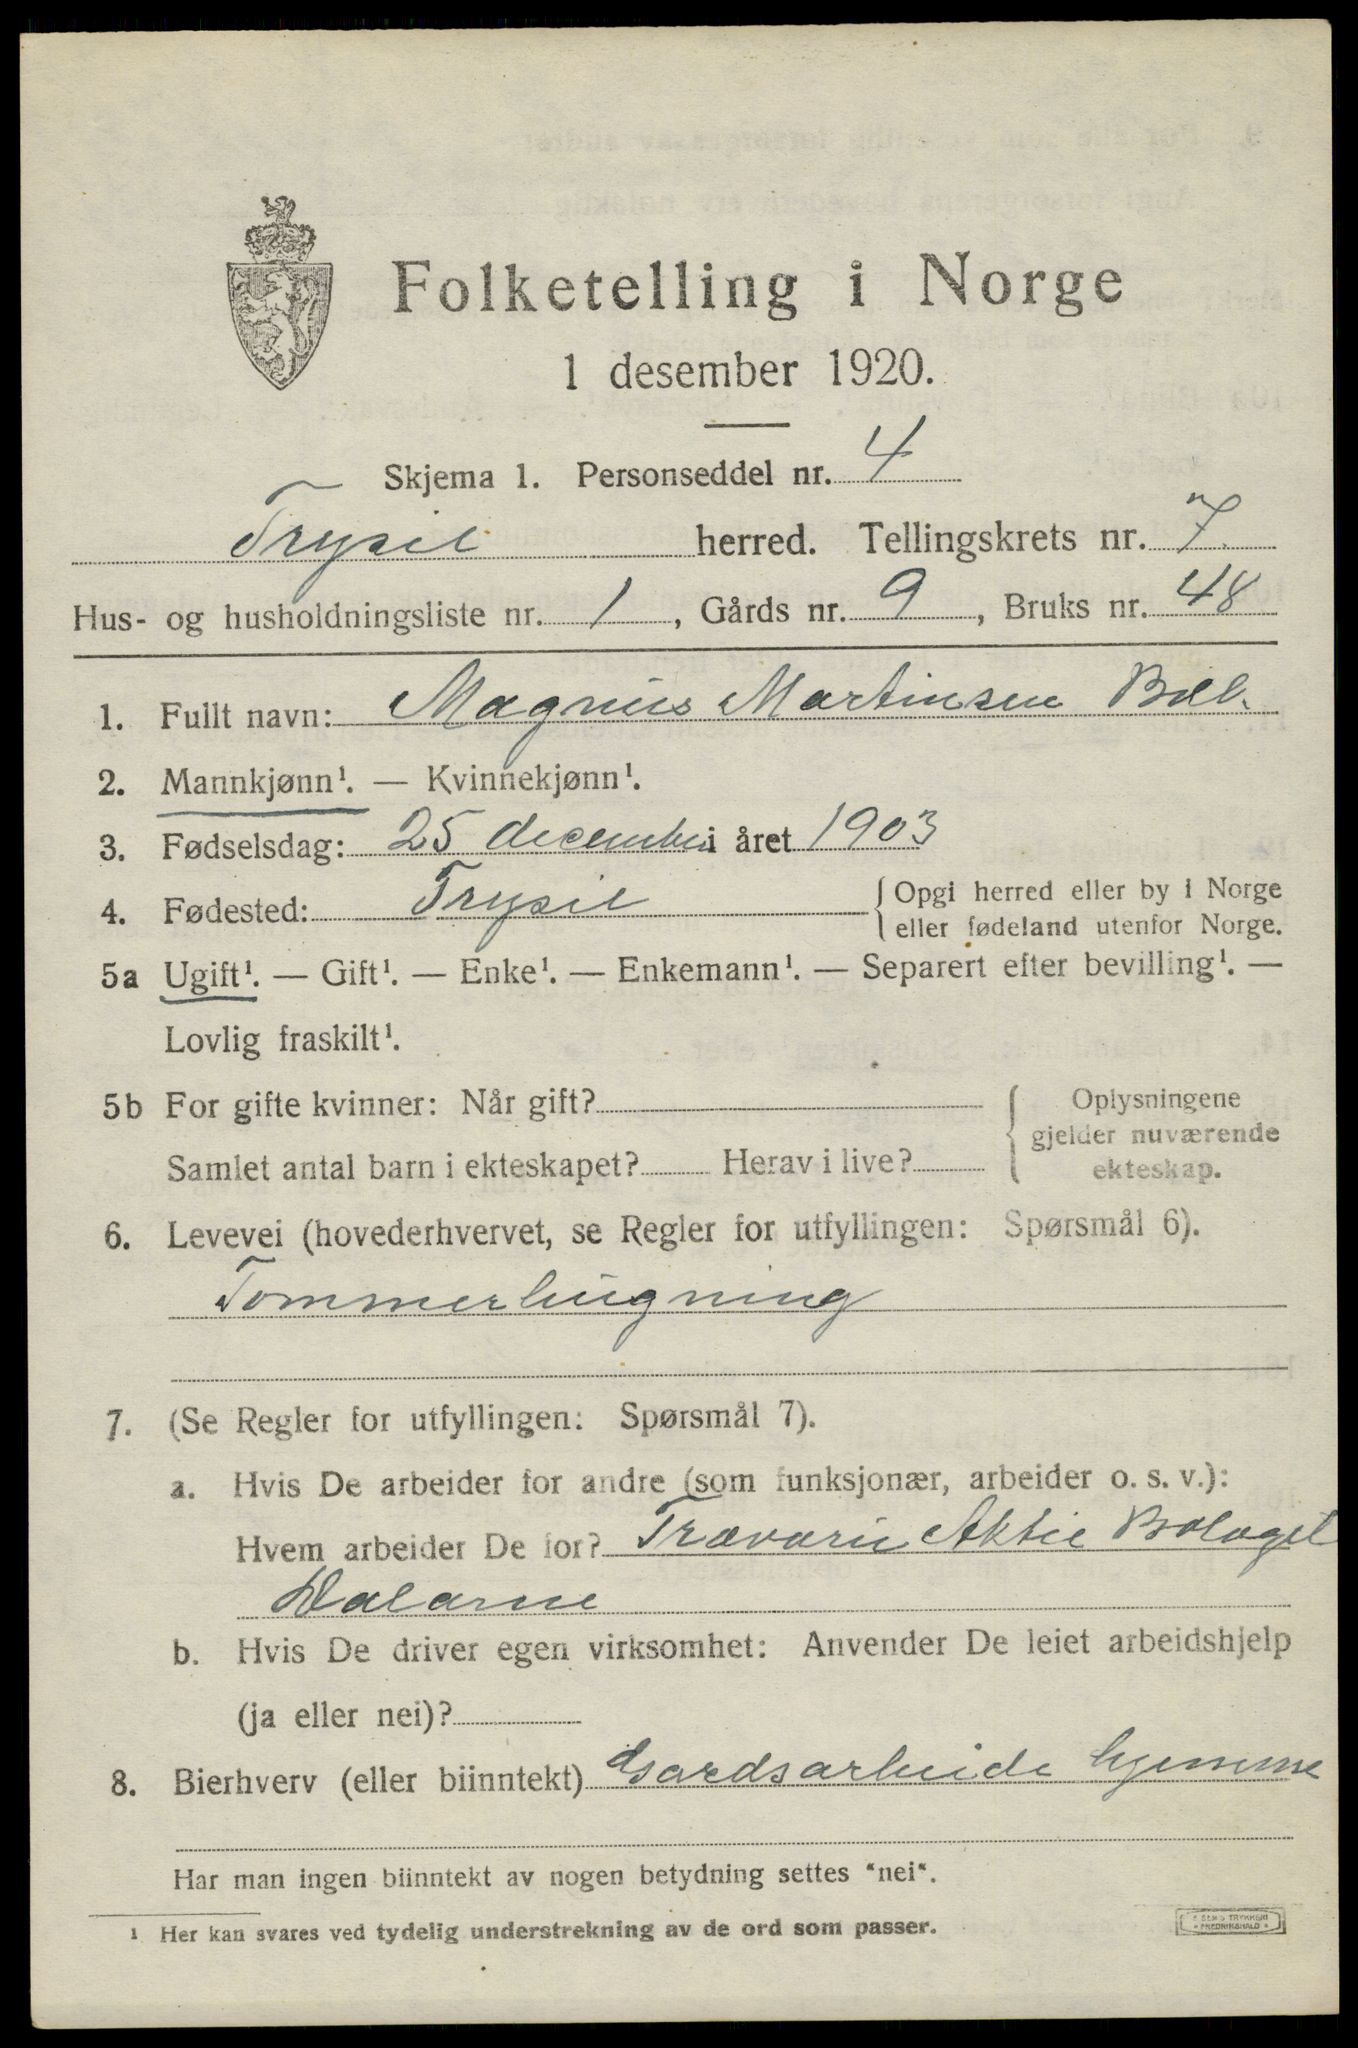 Folketelling i Norge
1 desember 1920.
Skjema 1. Personseddel nr. 4
Trysil herred. Tellingskrets nr. 7.
Hus- og husholdningsliste nr. 1, Gårds nr. 9, Bruks nr. 48
1. Fullt navn: Magnus Martinsen
2. Mannkjønn¹. — Kvinnekjønn¹.
3. Fødselsdag: 25 december i året 1903
4. Fødested: Trysil { Opgi herred eller by i Norge
eller fødeland utenfor Norge.
5a Ugift¹. — Gift¹. — Enke¹. — Enkemann¹. — Separert efter bevilling¹. —
Lovlig fraskilt¹.
5b For gifte kvinner: Når gift? { Oplysningene
gjelder nuværende
Samlet antal barn i ekteskapet? Herav i live? ekteskap.
6. Levevei (hovederhvervet, se Regler for utfyllingen: Spørsmål 6).
Tømmerhugning
7. (Se Regler for utfyllingen: Spørsmål 7).
a. Hvis De arbeider for andre (som funksjonær, arbeider o. s. v.):
Hvem arbeider De for? Trævaru Aktie Bolaget
Dalarne
b. Hvis De driver egen virksomhet: Anvender De leiet arbeidshjelp
(ja eller nei)?
8. Bierhverv (eller biinntekt) Gardsarbeide hjemme
Har man ingen biinntekt av nogen betydning settes "nei".
¹ Her kan svares ved tydelig understrekning av de ord som passer.